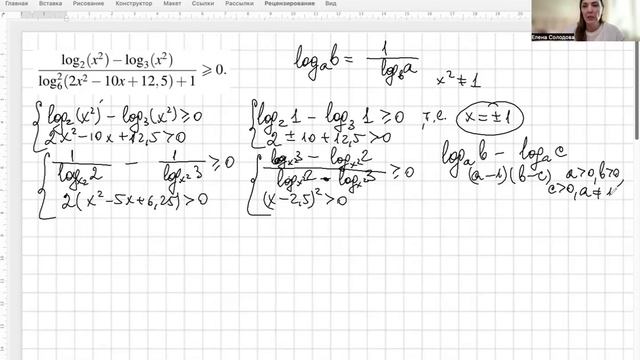 Главная Вставка Рисование Конструктор Макет Ссылки Рассылки Рецензирование Вид
Елена Солодова
log₂(x²) − log₃(x²)
log₆²(2x² − 10x + 12,5) + 1
⩾ 0.
logₐb = 1 / log_b a
x² ≠ 1
log₂(x²) − log₃(x²) ≥ 0
2x² − 10x + 12,5 > 0
log₂1 − log₃1 ≥ 0
2 ± 10 + 12,5 > 0
т.е. x = ±1
1 / log_{x²}2 − 1 / log_{x²}3 ≥ 0
2(x² − 5x + 6,25) > 0
log_{x²}3 − log_{x²}2
log_{x²}2 · log_{x²}3
≥ 0
(x − 2,5)² > 0
logₐb − logₐc
(a−1)(b−c) a>0, b>0,
c>0, a≠1